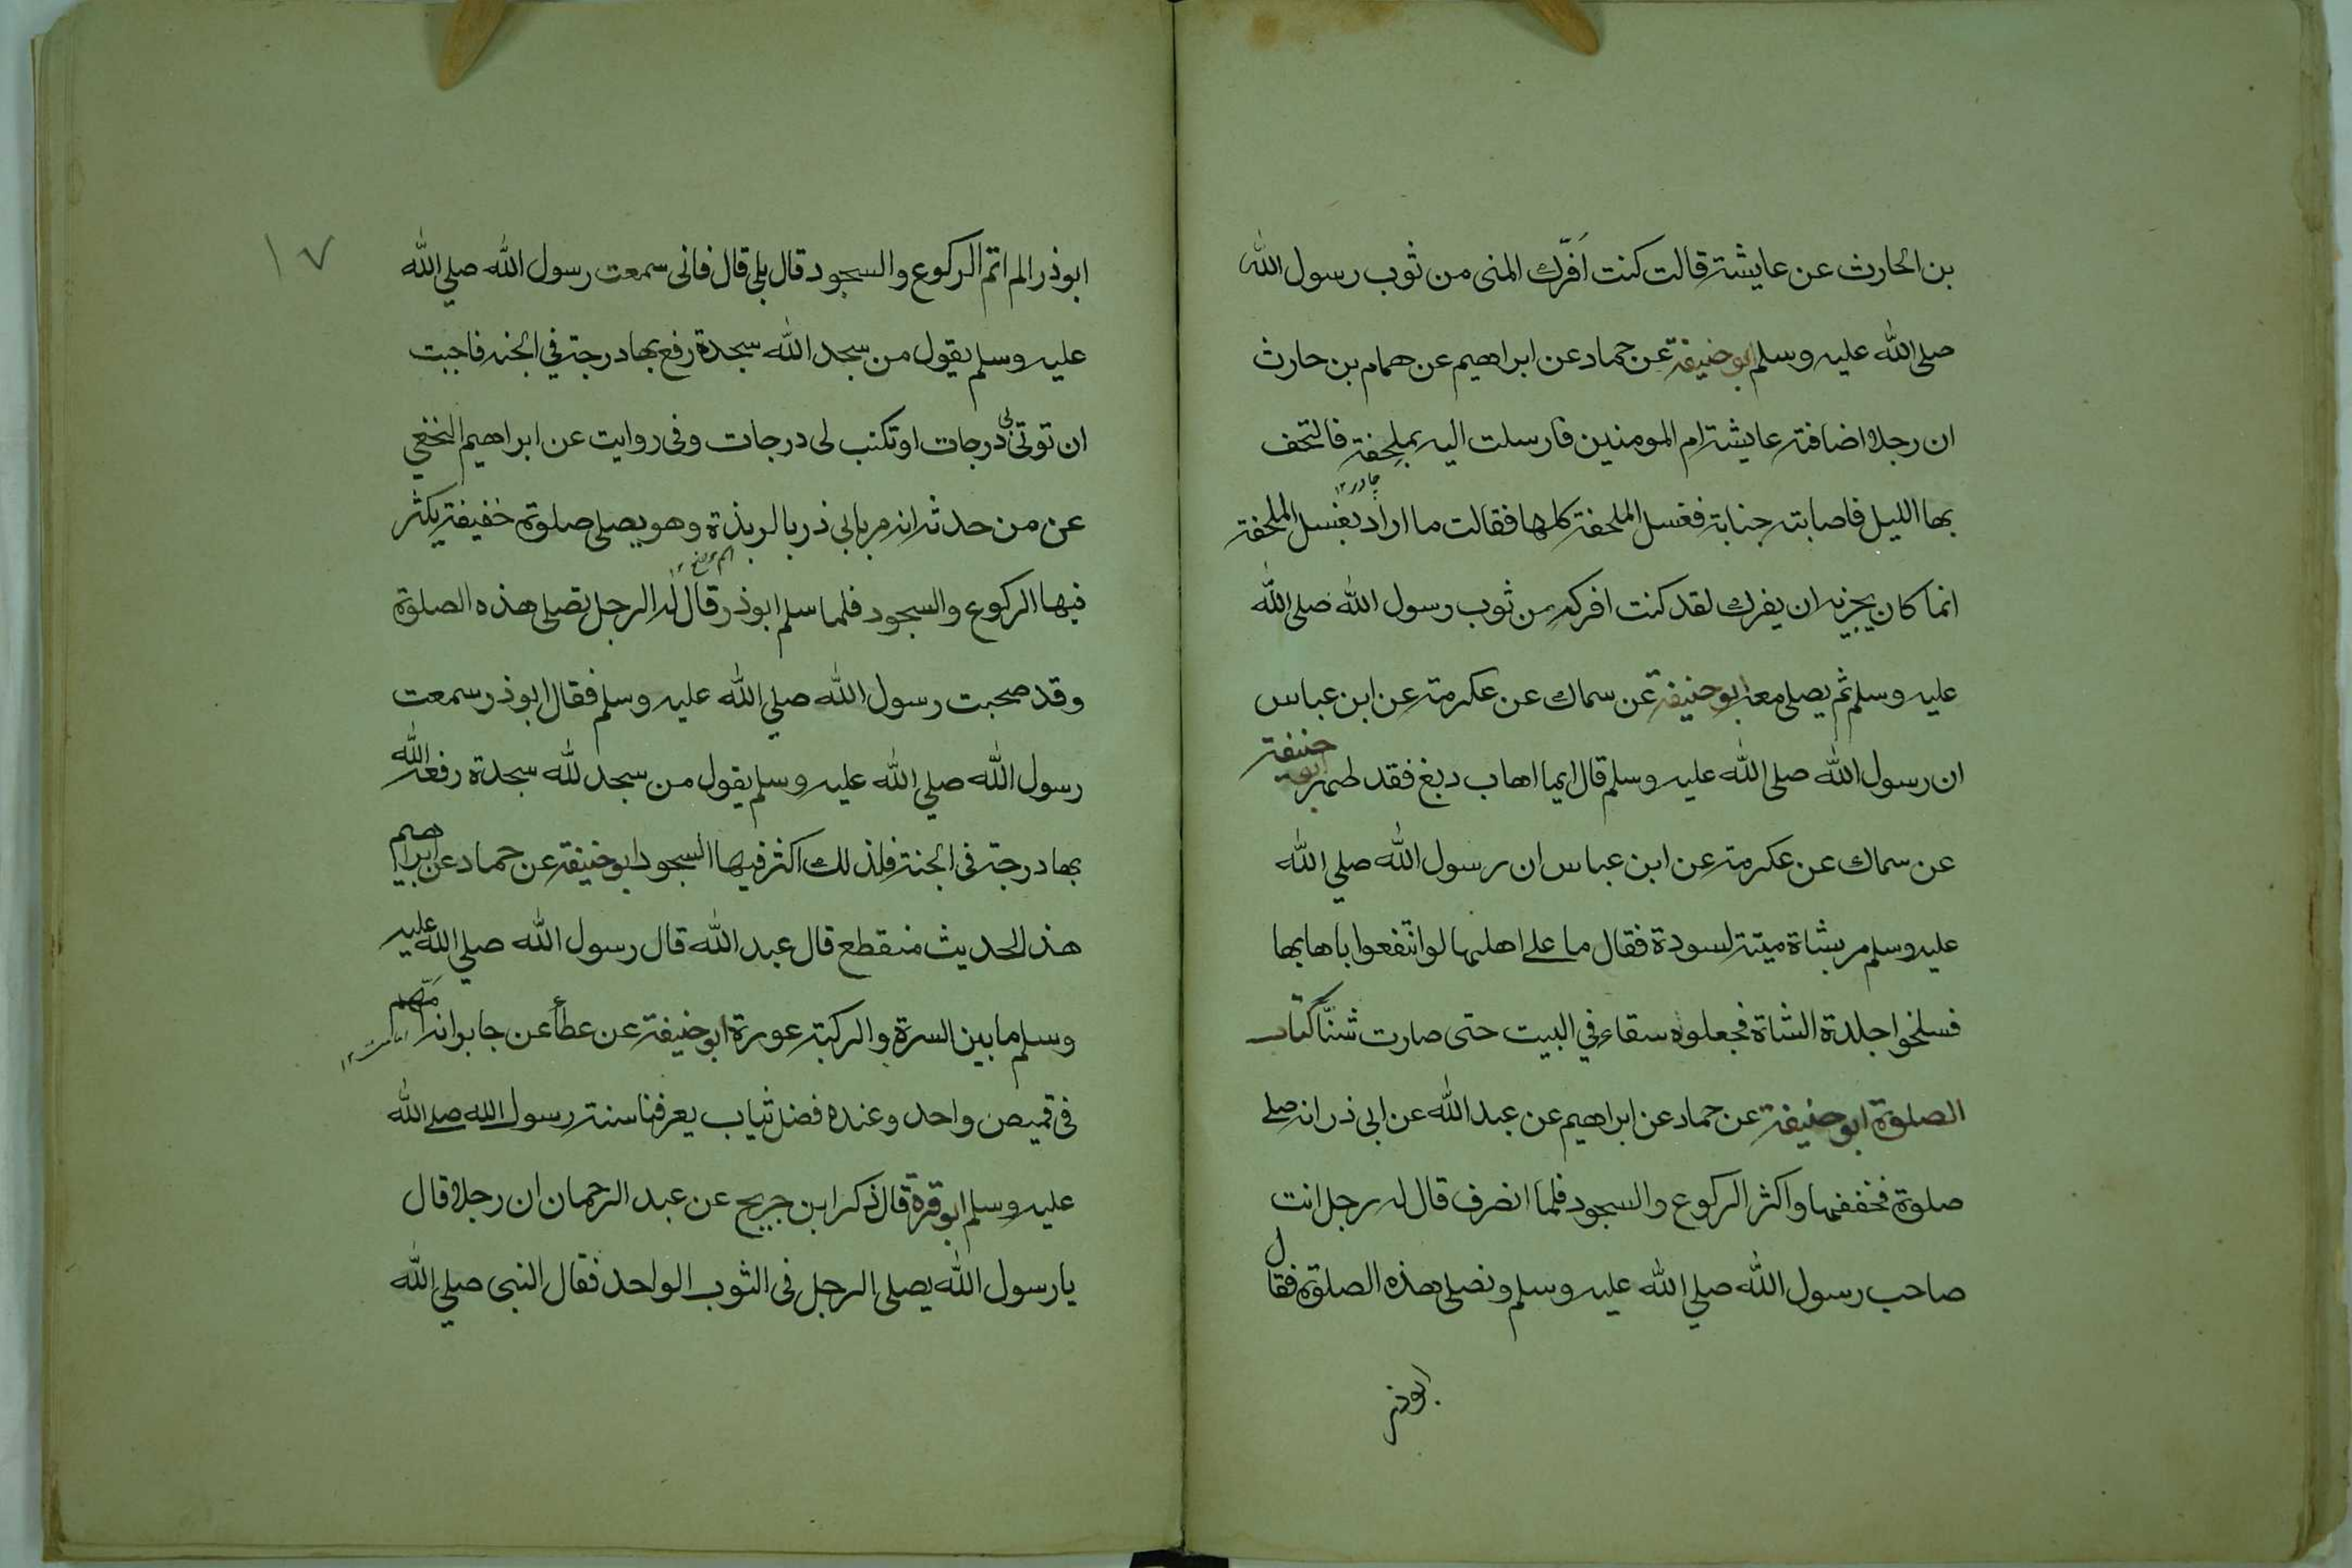 بن الحارث عن عايشة قالت كنت اَفرّك المنى من ثوب رسول الله
صلى الله عليه وسلم ابو حنيفة عن حماد عن ابراهيم عن همام بن حارث
ان رجلا اضافته عايشة ام المومنين فارسلت اليه بملحفة فالتحف
چادر ١٢
بها الليل فاصابته جنابة فغسل الملحفة كلها فقالت ما اراد بغسل الملحفة
انما كان يجزيه ان يفرك لقد كنت افركه من ثوب رسول الله صلى الله
عليه وسلم ثم يصلى معه ابو حنيفة عن سماك عن عكرمة عن ابن عباس
ان رسول الله صلى الله عليه وسلم قال ايما اهاب دبغ فقد طهر ابو حنيفة
عن سماك عن عكرمة عن ابن عباس ان رسول الله صلي الله
عليه وسلم مر بشاة ميتة لسودة فقال ما على اهلها لو انتفعوا باهابها
فسلخوا جلدة الشاة فجعلوه سقاء في البيت حتى صارت شنًّا كتاب
الصلوة ابو حنيفة عن حماد عن ابراهيم عن عبد الله عن ابى ذر انه صلى
صلوة فخففها واكثر الركوع والسجود فلما انصرف قال له رجل انت
صاحب رسول الله صلي الله عليه وسلم وتصلى هذه الصلوة فقال
ابوذر
١٧
ابوذر الم اتم الركوع والسجود قال بلى قال فانى سمعت رسول الله صلي الله
عليه وسلم يقول من سجد الله سجدة رفع بها درجة في الجنه فاحببت
ان توتى لى درجات او تكتب لى درجات وفى روايت عن ابراهيم النخعي
عن من حدثه انه مر بابى ذر بالربذة وهو يصلى صلوة خفيفة يكثر
فيها الركوع والسجود فلما سلم ابوذر قال له الرجل تصلى هذه الصلوة
وقد صحبت رسول الله صلي الله عليه وسلم فقال ابوذر سمعت
رسول الله صلي الله عليه وسلم يقول من سجد لله سجدة رفعه الله
بها درجة فى الجنة فلذلك اكثر فيها السجود ابو حنيفة عن حماد عن ابراهيم
هذ الحديث منقطع قال عبد الله قال رسول الله صلي الله عليه
وسلم ما بين السرة والركبة عورة ابو حنيفة عن عطأ عن جابر انه امّهم
امامت ١٢
فى قميص واحد وعنده فضل ثياب يعرفنا سنة رسول الله صلى الله
عليه وسلم ابو قرة قال ذكر ابن جريج عن عبد الرحمان ان رجلا قال
يا رسول الله يصلى الرجل فى الثوب الواحد فقال النبى صلي الله